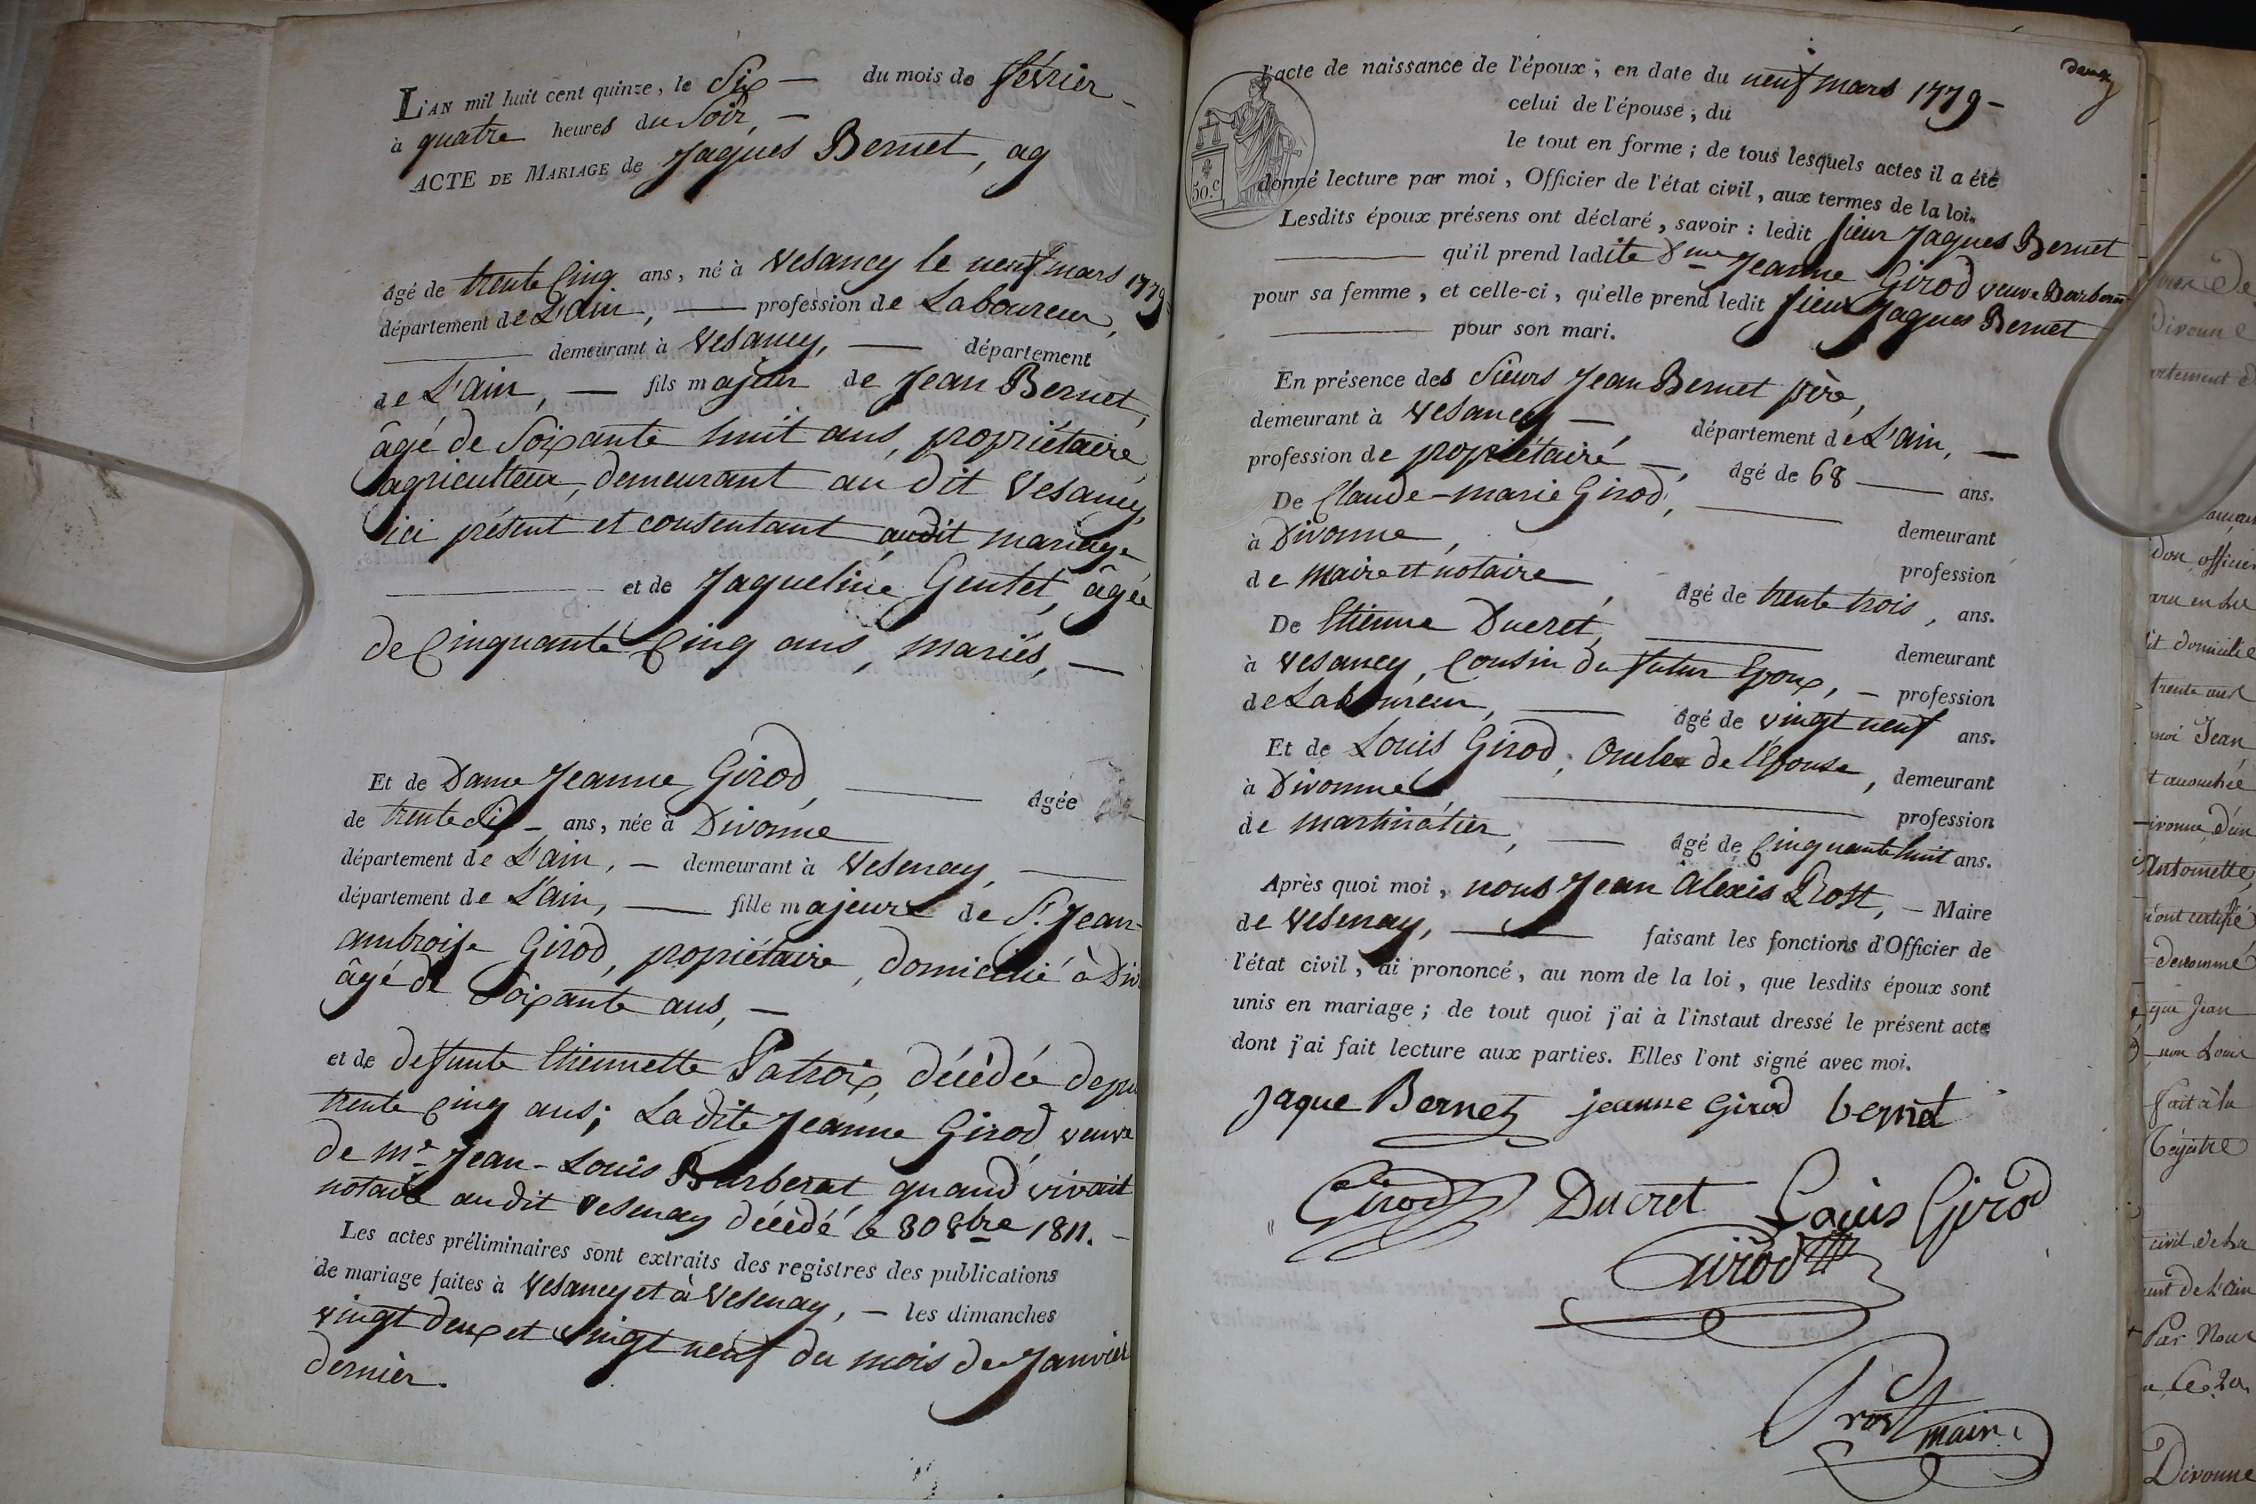 L'AN mil huit cent quinze, le Six — du mois de février —
à quatre heures du Soir, —
ACTE DE MARIAGE de Jaques Bernet, ag
âgé de trente Cinq ans, né à Vesancy le neuf mars 1779
département de L'ain, — profession de Laboureur,
— demeurant à Vesancy, — département
de L'ain, — fils majeur de Jean Bernet,
âgé de Soixante huit ans, propriétaire
agriculteur, demeurant au dit Vesancy,
ici présent et consentant audit mariage
— et de Jaqueline Gentet, âgée
de Cinquante Cinq ans, mariés, —
Et de Dame Jeanne Girod, — âgée
de trente Six — ans, née à Divonne
département de L'ain, — demeurant à Vesenay, —
département de L'ain, — fille majeure de Sr. Jean-
ambroise Girod, propriétaire, domicilié à Div
âgé de Soixante ans, —
et de defunte Etiennette Patroix, décédée depu
trente cinq ans; La dite Jeanne Girod veuve
de Me Jean-Louis Barberat, quand vivait
notaire au dit Vesenay décédé le 30 8bre 1811. —
Les actes préliminaires sont extraits des registres des publications
de mariage faites à Vesancy et à Vesenay, — les dimanches
vingt deux et vingt neuf du mois de Janvier
dernier.
deux
l'acte de naissance de l'époux, en date du neuf mars 1779 —
celui de l'épouse, du
le tout en forme; de tous lesquels actes il a été
donné lecture par moi, Officier de l'état civil, aux termes de la loi.
50.c
Lesdits époux présens ont déclaré, savoir: ledit sieur Jaques Bernet
— qu'il prend ladite Dme Jeanne Girod veuve Barberat
pour sa femme, et celle-ci, qu'elle prend ledit sieur Jaques Bernet
— pour son mari.
En présence des Sieurs Jean Bernet père,
demeurant à Vesancy —, département de L'ain, —
profession de propriétaire —, âgé de 68 — ans.
De Claude-marie Girod, — demeurant
à Divonne, profession
de maire et notaire, âgé de trente trois, ans.
De Etienne Ducret, — demeurant
à Vesancy, Cousin du futur Epoux, — profession
de Laboureur, — âgé de vingt neuf ans.
Et de Louis Girod, Oncle de l'Epouse, demeurant
à Divonne — profession
de martinatier, — âgé de Cinquante huit ans.
Après quoi moi, nous Jean Alexis Prost, — Maire
de Vesenay, — faisant les fonctions d'Officier de
l'état civil, ai prononcé, au nom de la loi, que lesdits époux sont
unis en mariage; de tout quoi j'ai à l'instaut dressé le présent acte
dont j'ai fait lecture aux parties. Elles l'ont signé avec moi.
Jaque Bernet jeanne Girod bernet
Girod Ducret Louis Girod
Girod
Prost maire
Divonne
don officier
dit domicile
trente aux
moi Jean
Antoinette,
n'ont certifié
denommé
que Jean
non Louis
fait à la
civil de la
ent de L'ain
Par Nous
Divonne